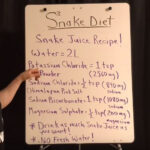 Snake Diet
Snake Juice Recipe!
Water = 2L
Potassium Chloride = 1/2 tsp
Powder (2360mg)
Sodium Chloride = 1/2 tsp
Himalayan Pink Salt
Sodium Bicarbonate = 1 tsp (1080mg sodium)
Magnesium Sulphate = 1/2 tsp (200mg
* Drink as much Snake Juice as
you want!
* NO Fresh Water!